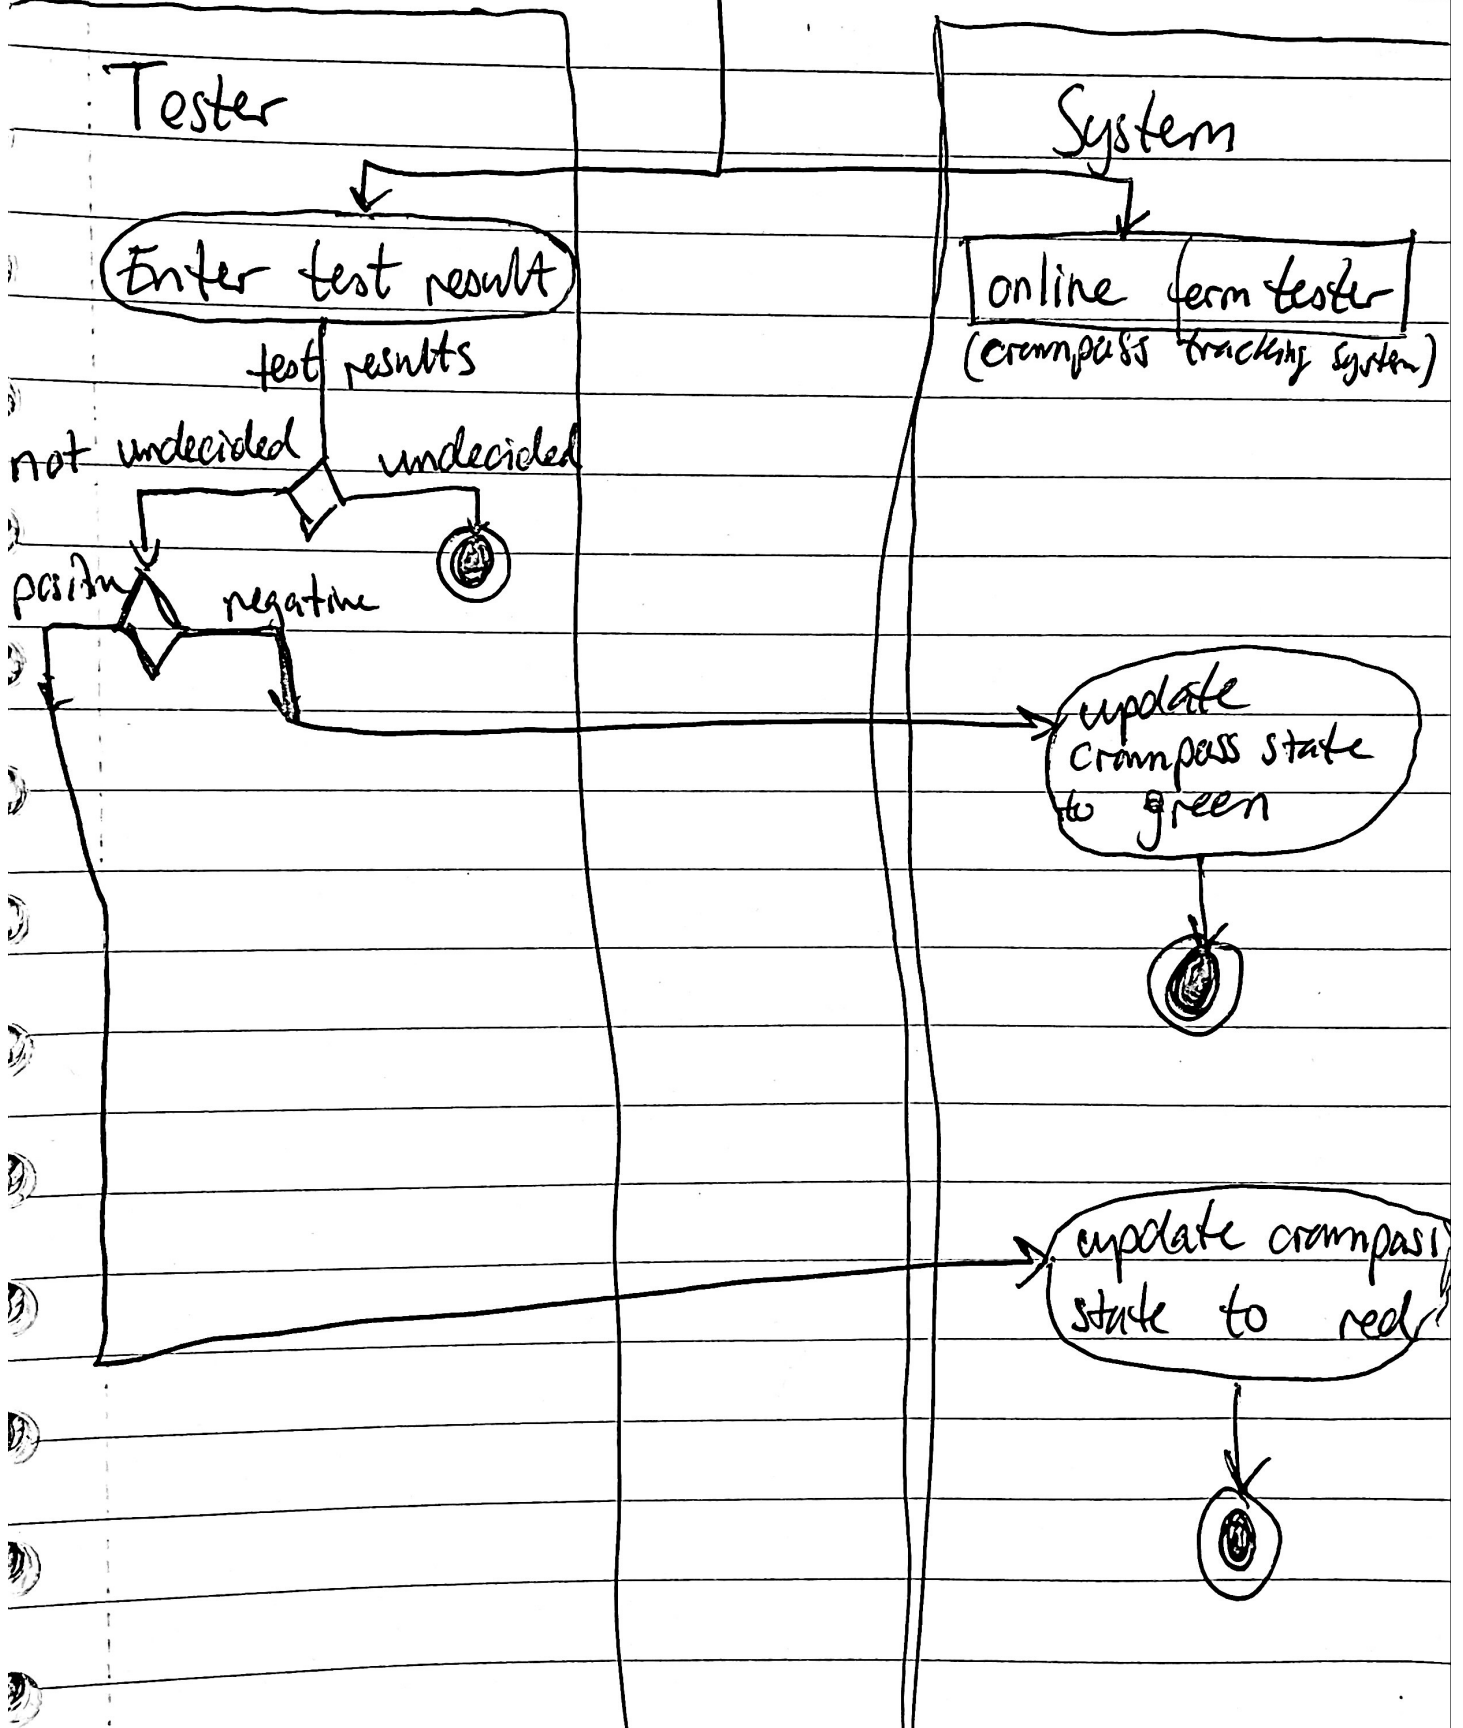 Tester
System
Enter test result
online form tester
(crownpass tracking system)
test results
not undecided
undecided
negative
update
crownpass state
to green
update crownpass
state to red